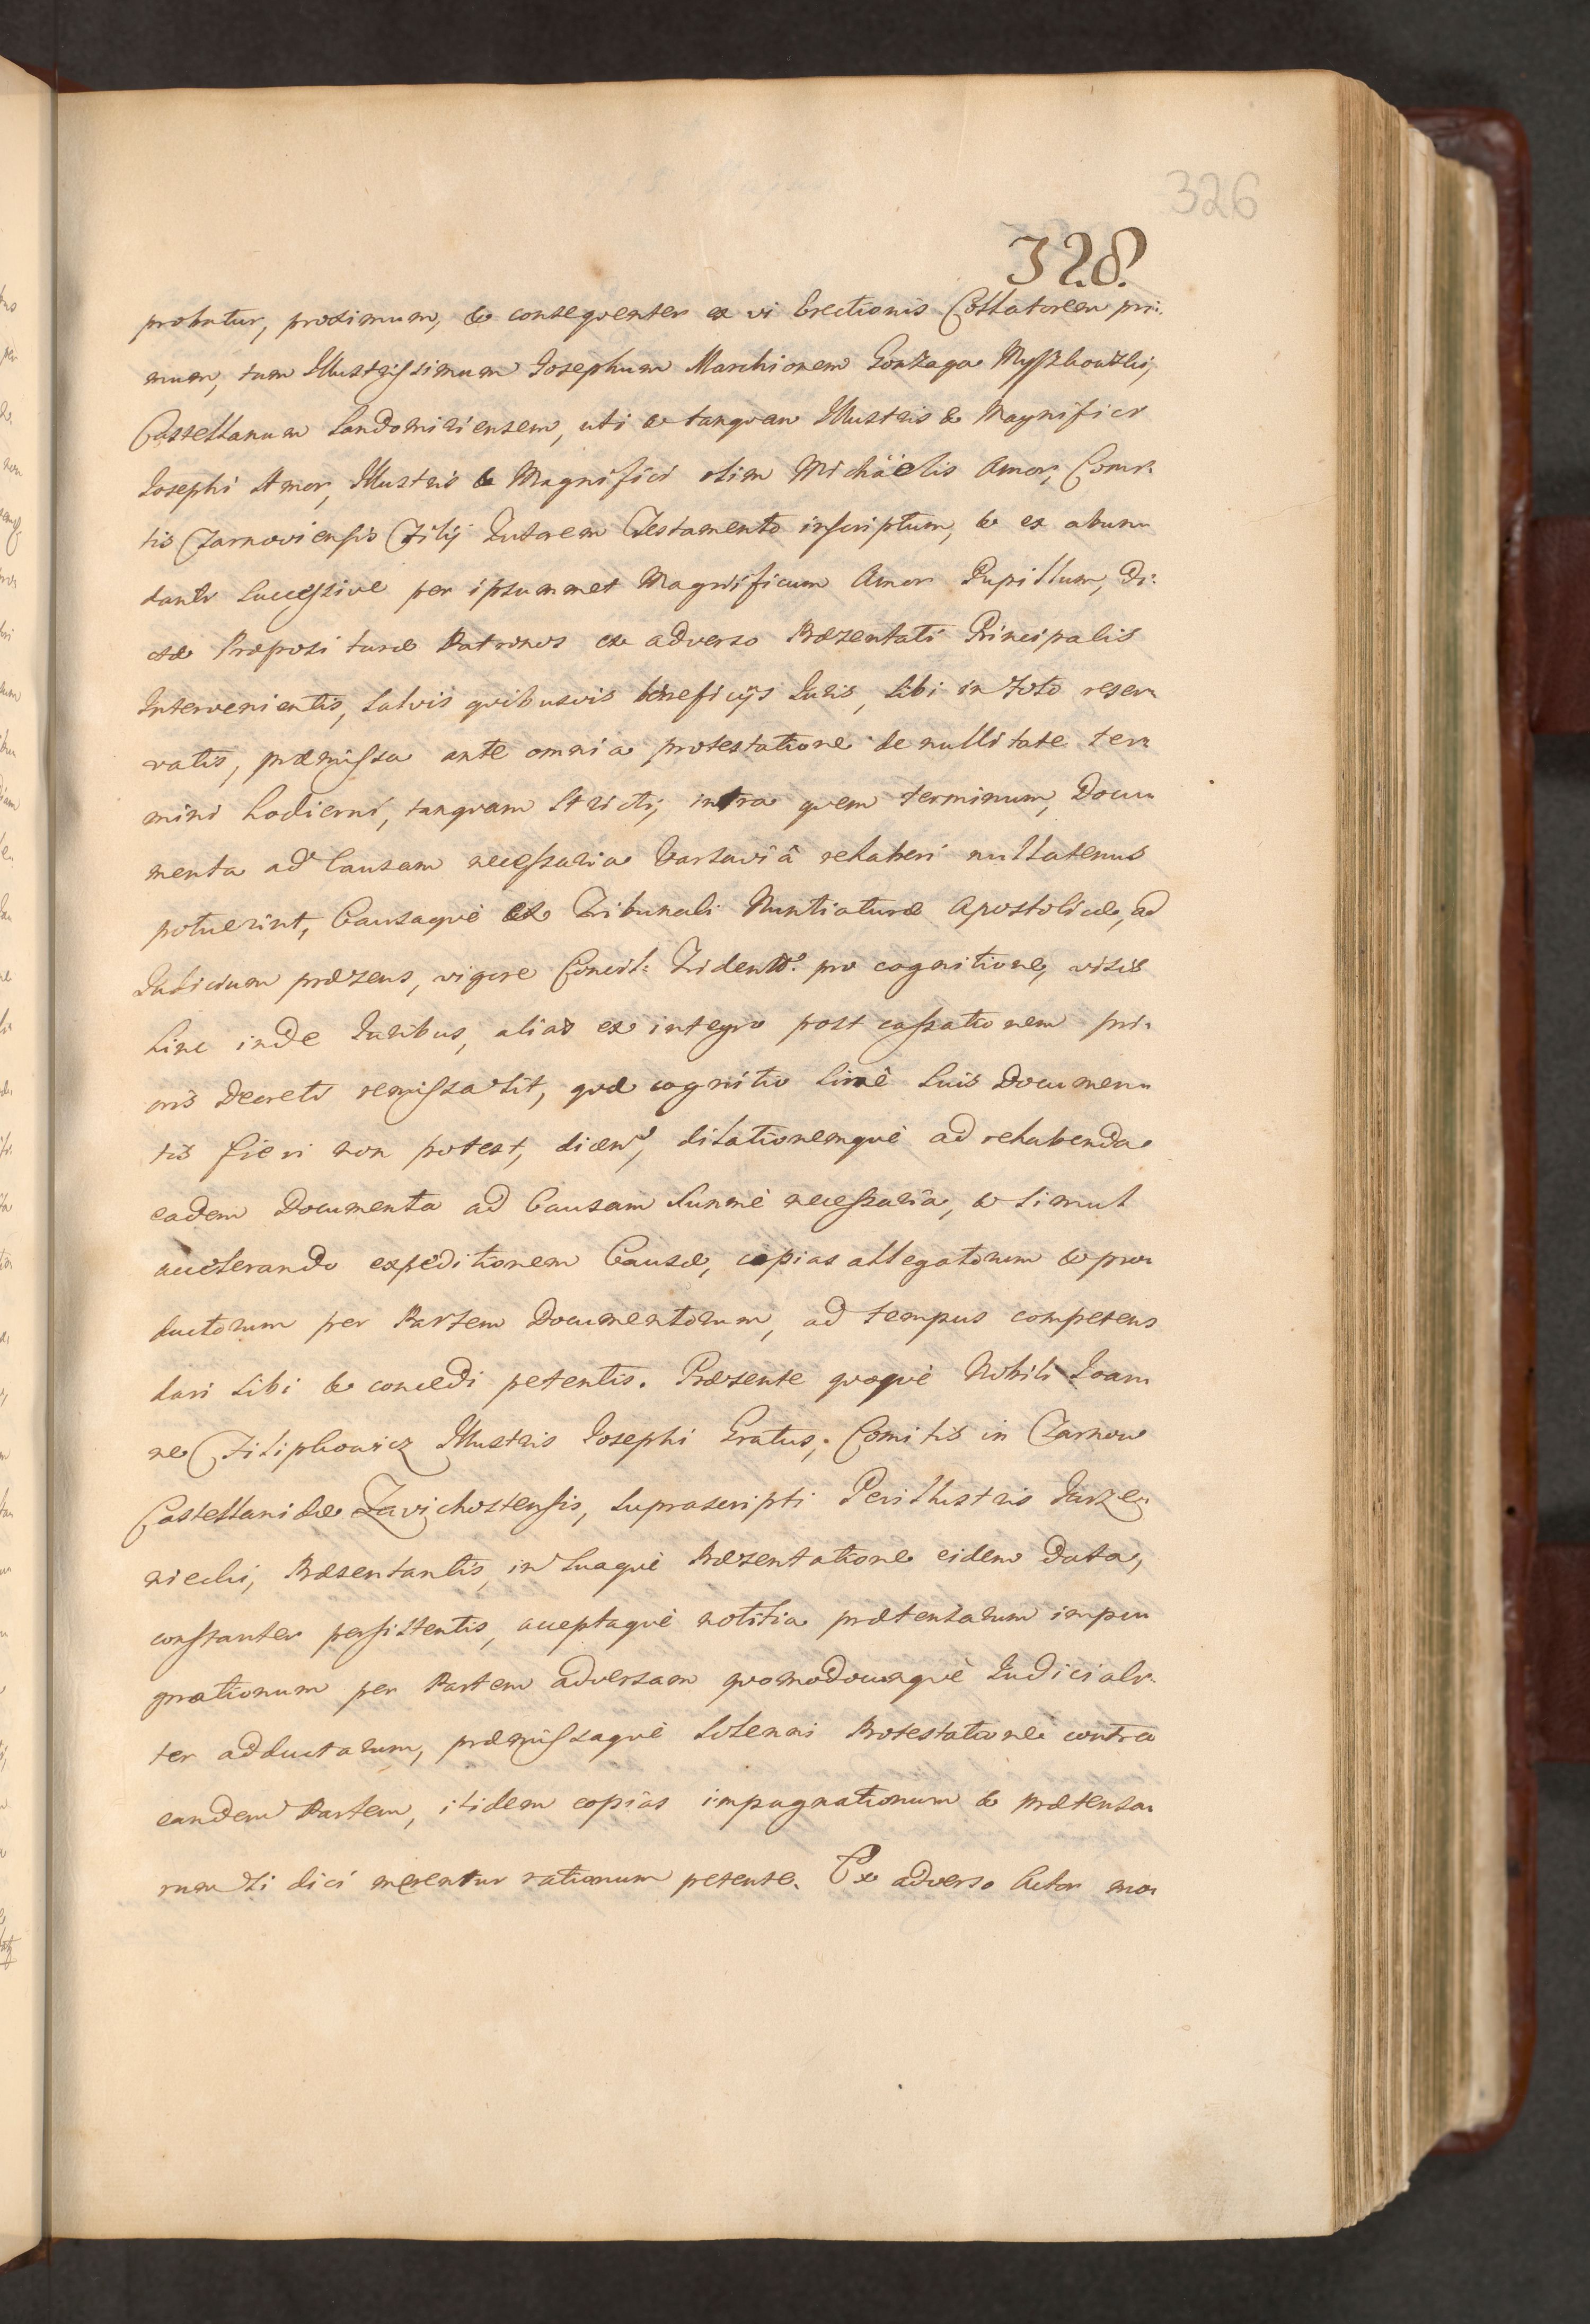 326
328.
probatur, proximum, & consequenter ex vi Erectionis Collatorem pri-
mum, tum Illustrissimum Josephum Marchionem Gonzaga Myszkowski,
Castellanum Sandomiriensem, uti & tanquam Illustris & Magnifici
Josephi Amor, Illustris & Magnifici olim Michäelis Amor, Comi-
tis Tarnoviensis Filij Tutorem Testamento inscriptum, & ex abun-
danti Successive per ipsummet Magnificum Amor Pupillum, Di-
ctæ Præposituræ Patronos ex adverso Præsentati Principalis
Intervenientis, Salvis quibusvis beneficijs Iuris, Sibi in Toto reser-
vatis, præmissa ante omnia protestatione de nullitate ter-
mini hodierni, tanquam Stricti, intra quem terminum, Docu-
menta ad Causam necessaria Varsaviâ rehaberi nullatenus
potuerint, Causaquè ex Tribunali Nuntiaturæ Apostolicæ, ad
Judicium præsens, vigore Concil: Trident: pro cognitione, visis
hinc inde Iuribus, alias ex integro post cassationem pri-
oris Decreti remissa sit, quæ cognitio sinè Suis Documen-
tis fieri non potest, dicen, dilationemquè ad rehabenda
eadem Documenta ad Causam Summè necessaria, & simul
accelerando expeditionem Causæ, copias allegatorum & pro-
ductorum per Partem Documentorum, ad tempus competens
dari Sibi & concedi petentis. Præsente quoquè Nobili Joan-
ne Filipkowicz Illustris Josephi Gratus, Comitis in Tarnow
Castellanidæ Zavichostensis, Suprascripti Perillustris Jarze-
niecki, Præsentantis, in Suaquè Præsentatione eidem data,
constanter persistentis, acceptaquè notitia prætensarum impu-
gnationum per Partem adversam quomodocunquè Judiciali-
ter adductarum, præmissaquè Solenni Protestatione contra
eandem Partem, itidem copias impugnationum & prætensa-
rum Si dici merentur rationum petente. Ex adverso Actor mo-